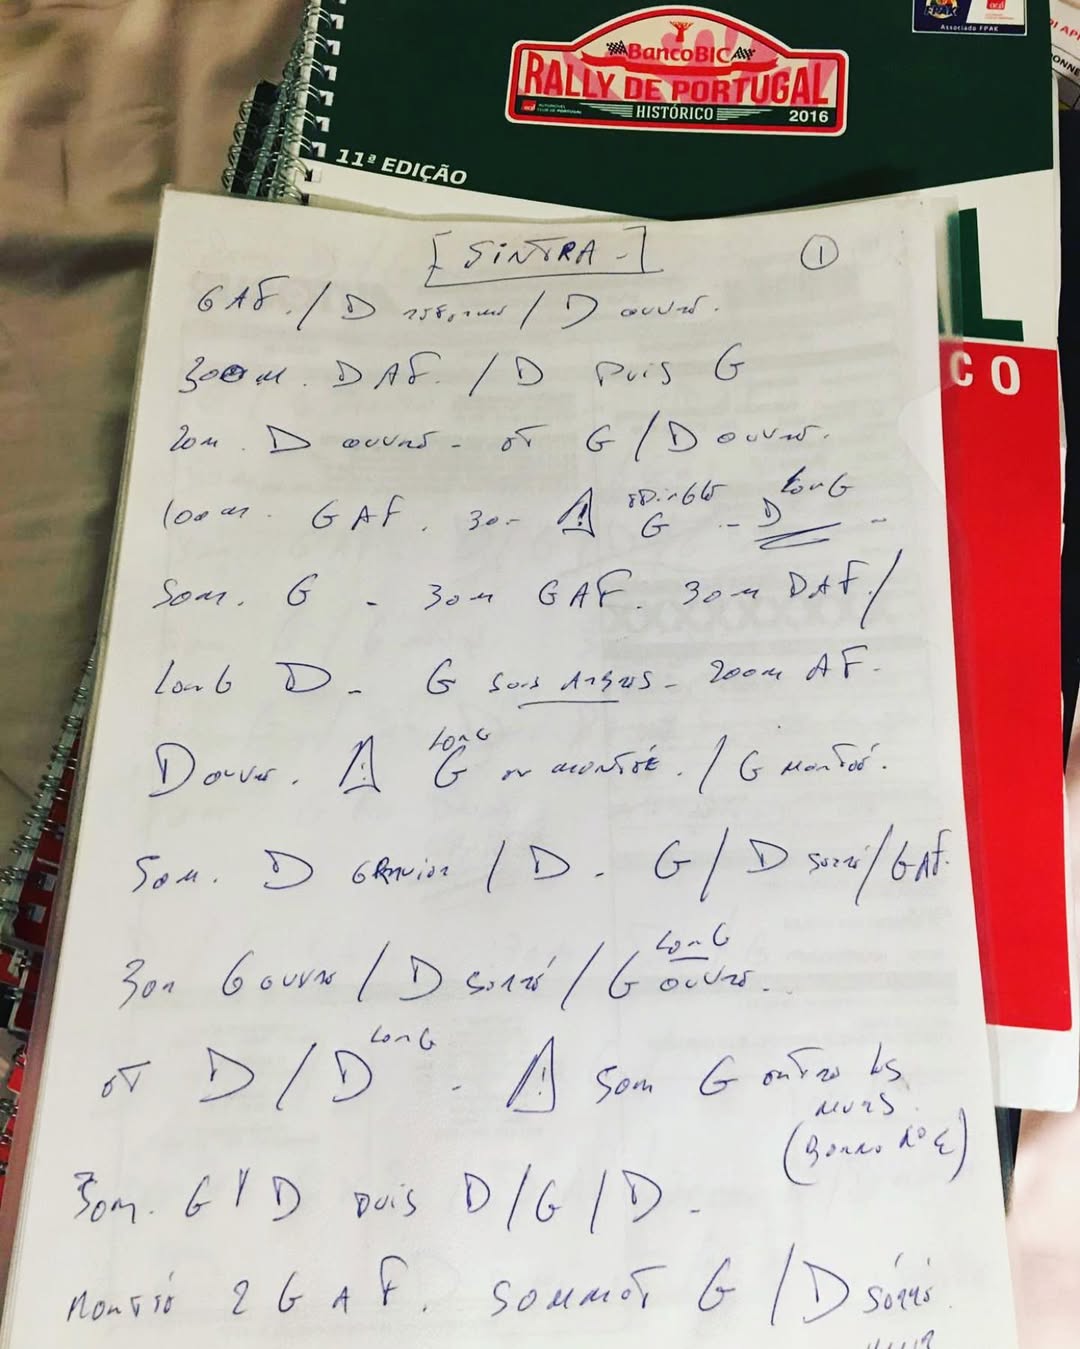 BancoBIC
RALLY DE PORTUGAL
HISTÓRICO
2016
AUTOMÓVEL CLUB DE PORTUGAL
FPAK
Associado FPAK
11ª EDIÇÃO
L
CO
[SINTRA-] 1
GAF. / D / D ouvert.
300m. DAF. / D puis G
20m. D ouvert - et G / D ouvert.
100m. GAF. 30- ! épingle G - long D -
50m. G - 30m GAF. 30m DAF /
long D - G sous arbres - 200m AF.
D ouvert. ! long G en montée. / G montée.
50m. D gravier / D. G / D serré / GAF.
30m G ouvert / D serré / G long ouvert.
et D / D long - ! 50m G entre les
murs.
(Borne n° 6)
30m. G / D puis D / G / D -
montée 2 G AF. sommet G / D serré